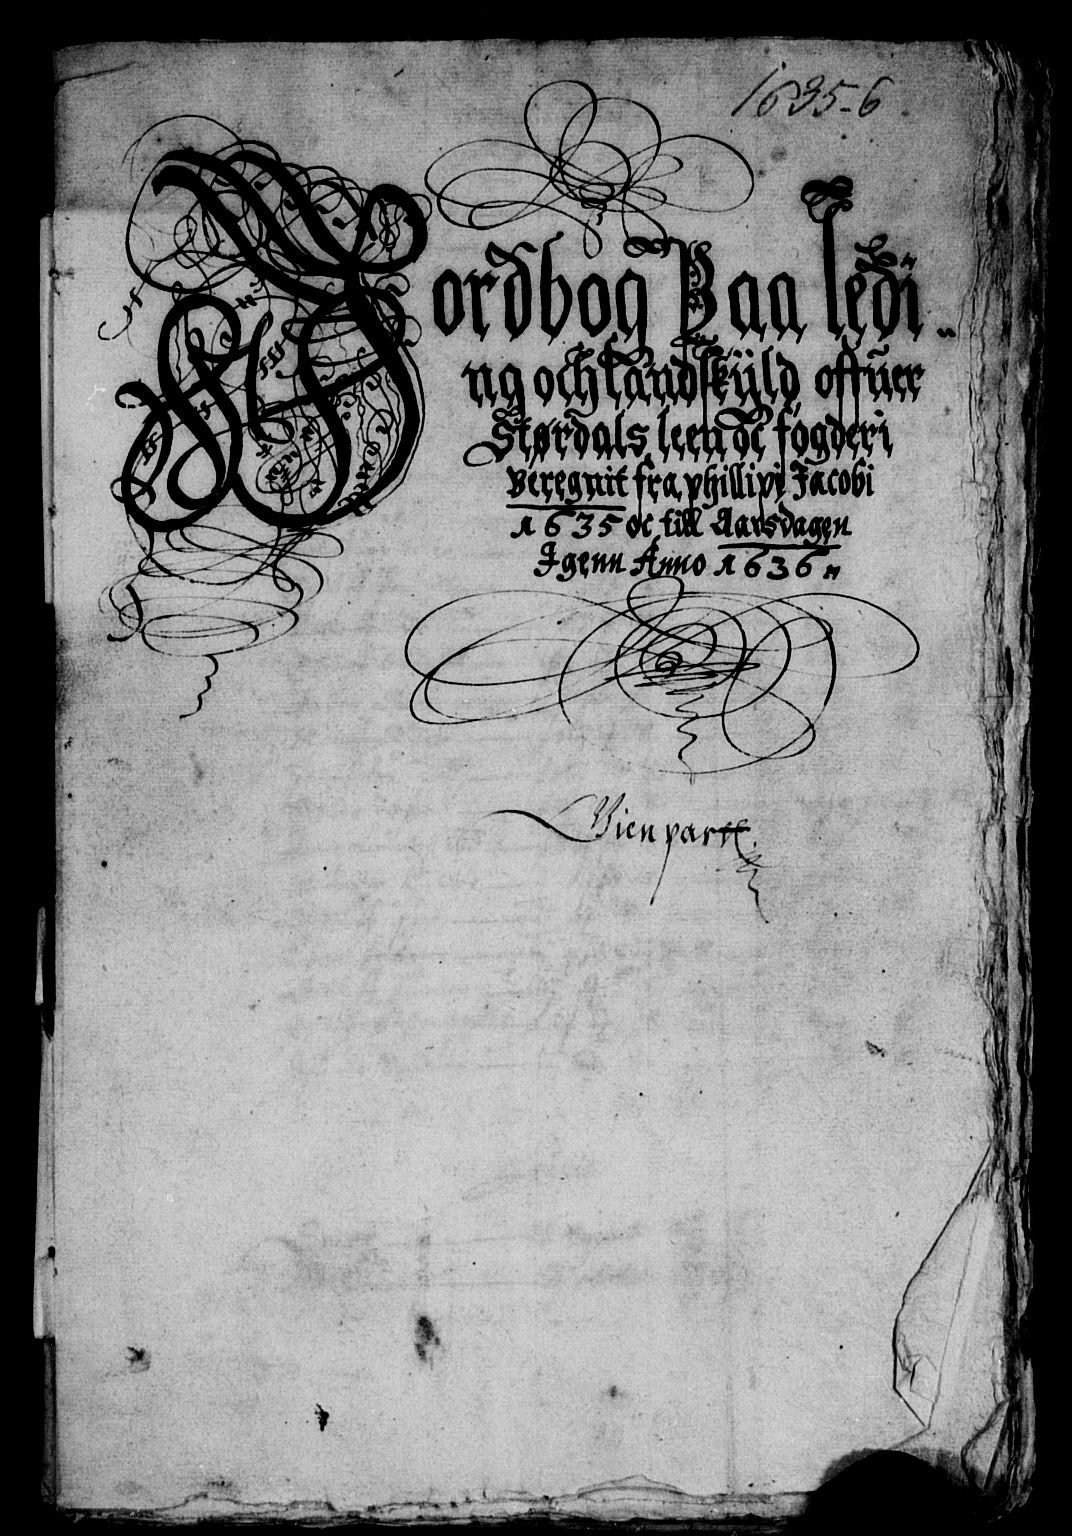 1635-6
Jordbog Paa ledi
ng och landskÿld offuer
Størdals leen oc fogderi
Beregnit fra phillipi Jacobi
1635 oc till Aarsdagen
Igenn Anno 1636
Vien partt.